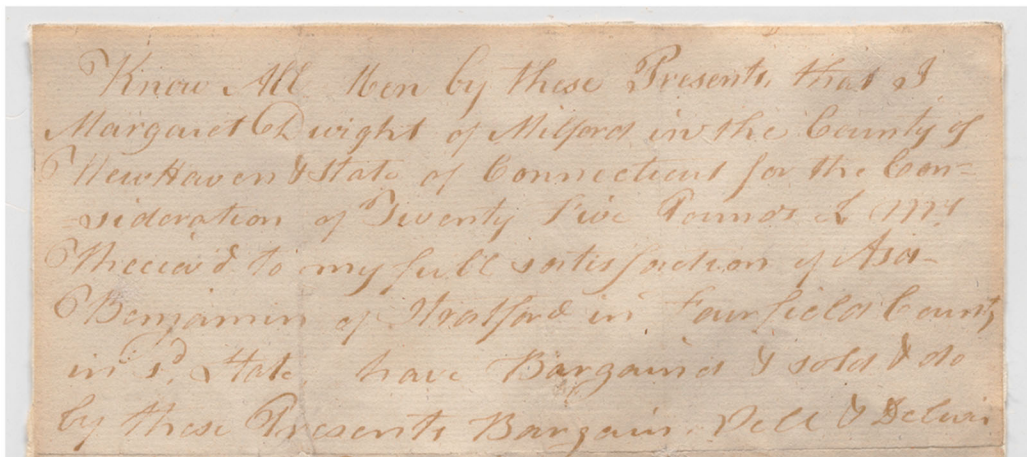 Know All Men by these Presents, that I
Margaret Dwight of Milford in the County of
New Haven & State of Connecticut for the Con=
=sideration of Twenty Five Pounds L My
Receiv'd to my full satisfaction of Asa
Benjamin of Stratford in Fairfield County
in sd. State have Bargained & sold & do
by these Presents Bargain, Sell & Deliver